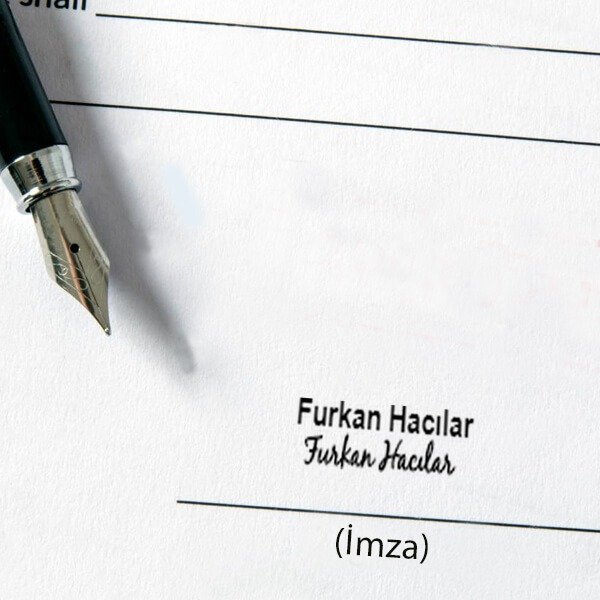 shall
Furkan Hacılar
Furkan Hacılar
(İmza)